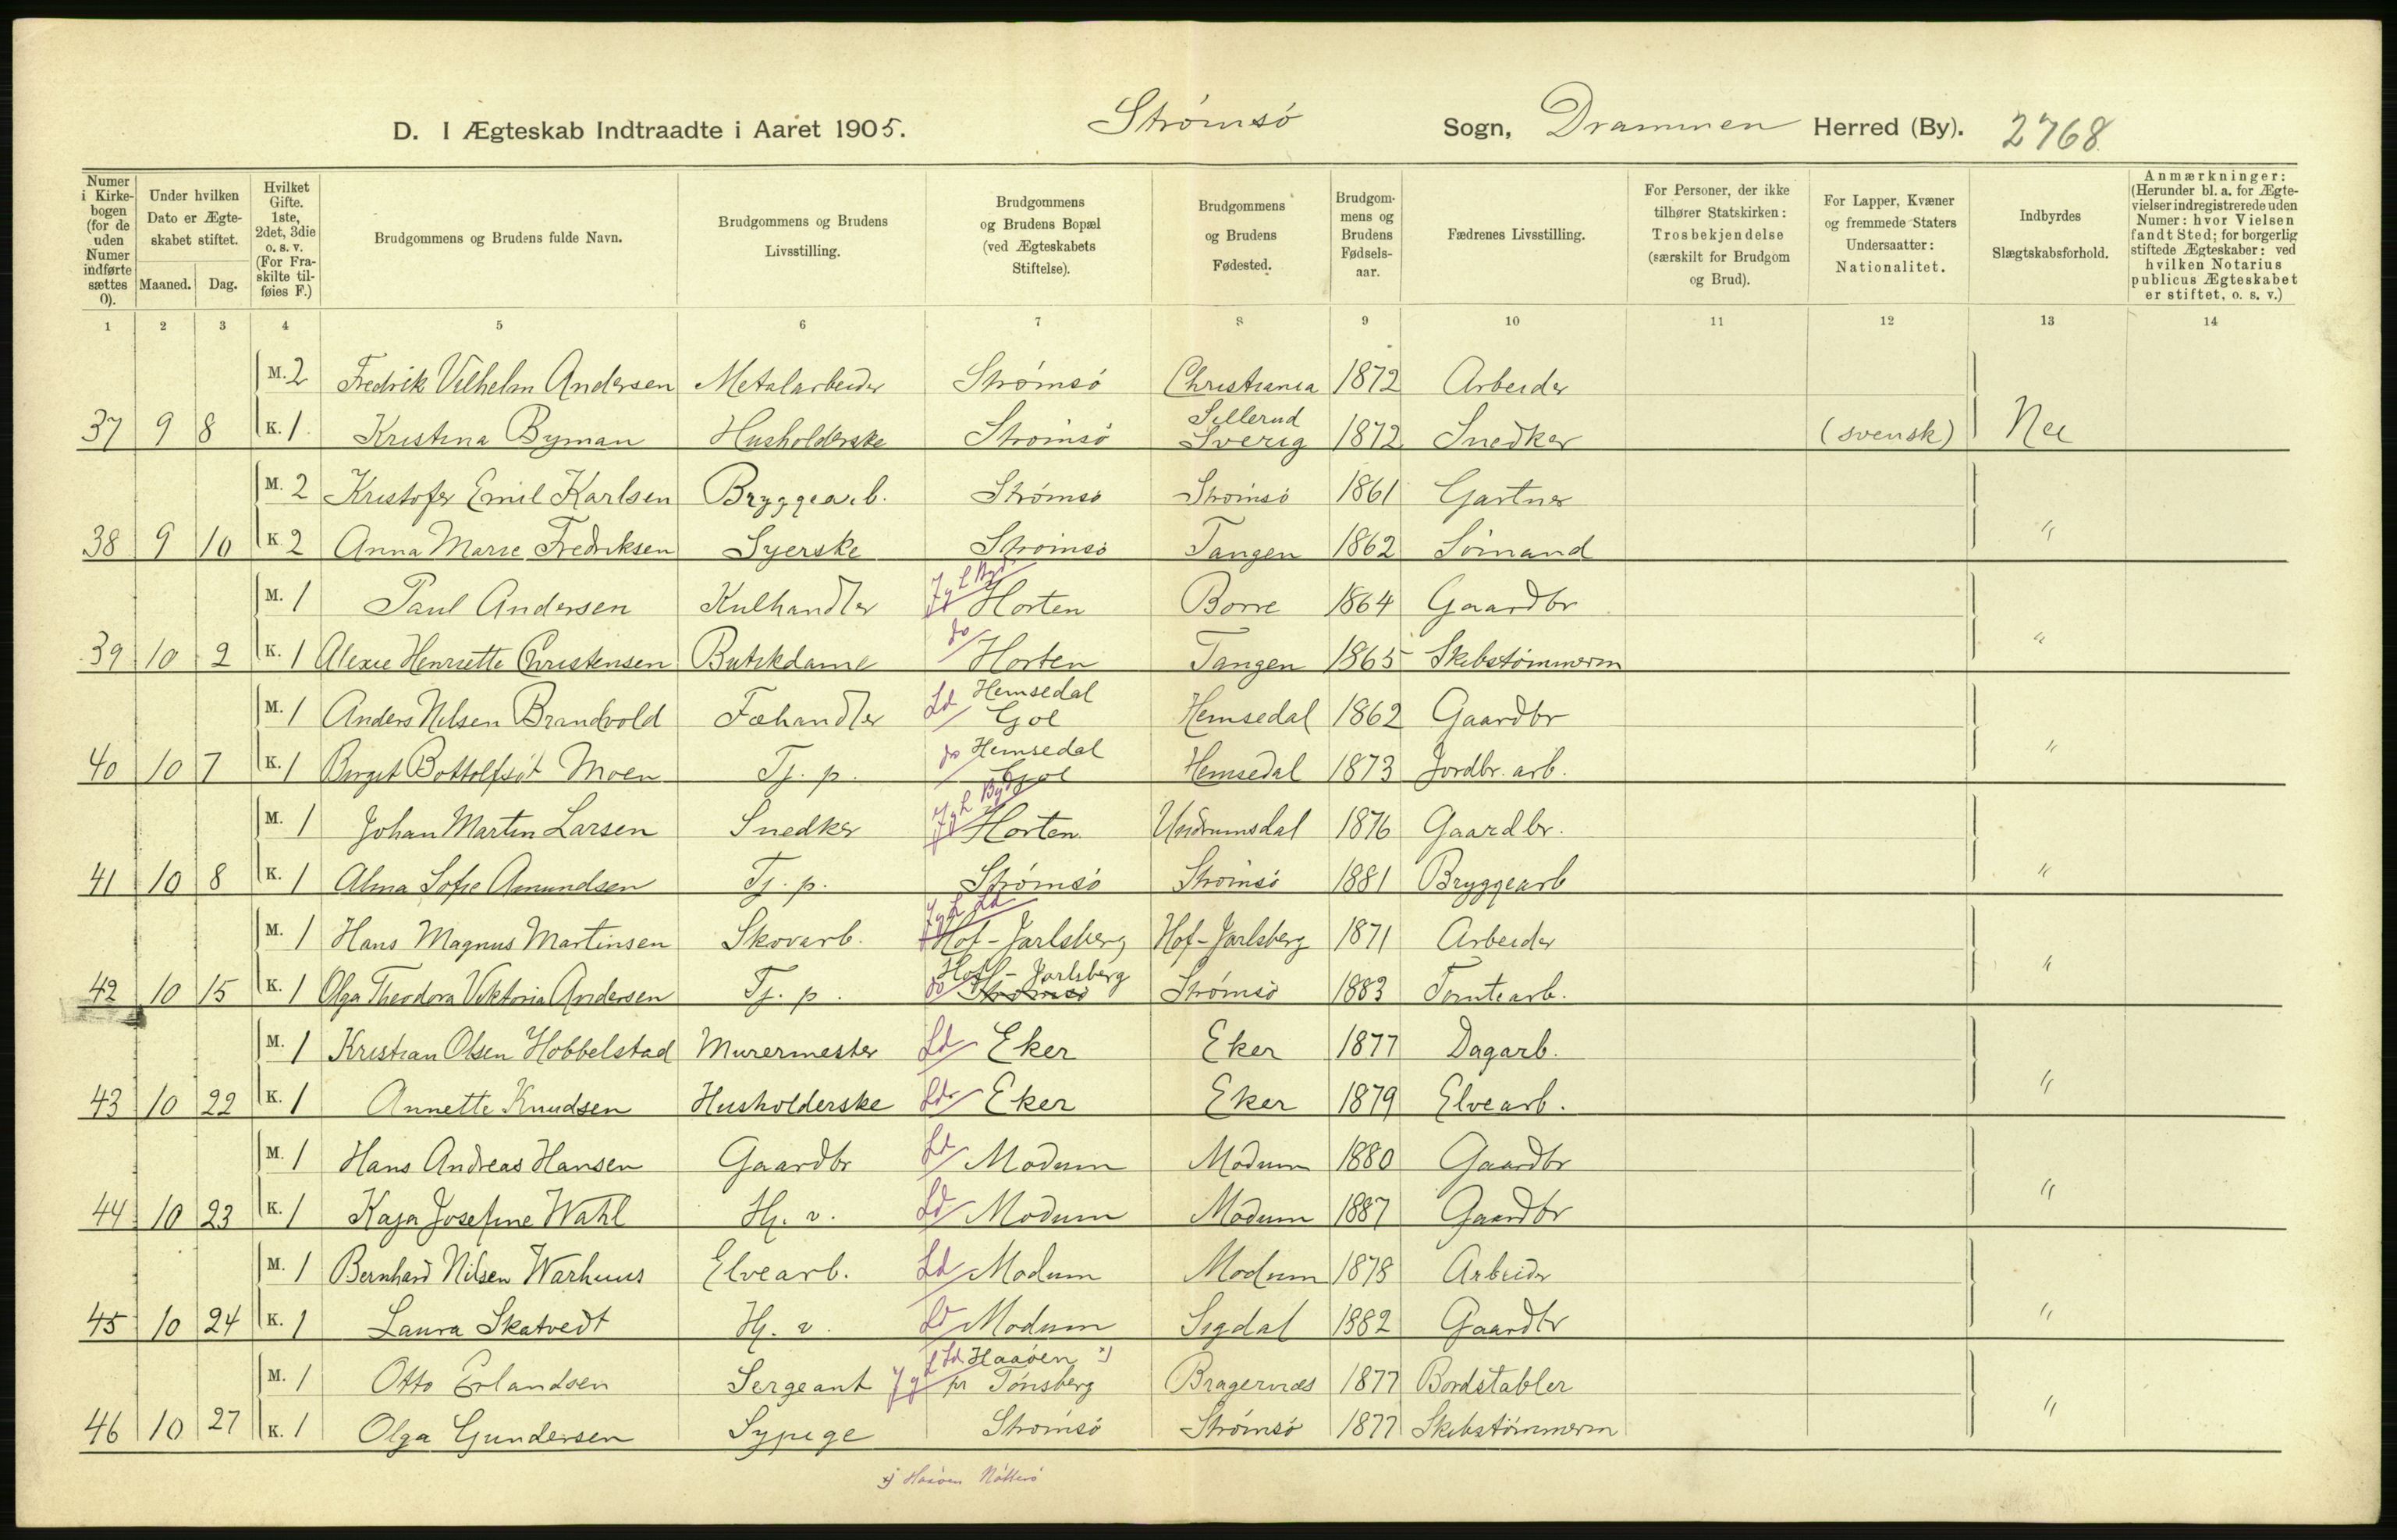 D. I Ægteskab Indtraadte i Aaret 1905. Strømsö Sogn, Drammen Herred (By). 2768
Numer i Kirkebogen (for de uden Numer indførte sættes 0).
Under hvilken Dato er Ægteskabet stiftet.
Maaned. Dag.
Hvilket Gifte. 1ste, 2det, 3die o. s. v. (For Fraskilte tilføies F.)
Brudgommens og Brudens fulde Navn.
Brudgommens og Brudens Livsstilling.
Brudgommens og Brudens Bopæl (ved Ægteskabets Stiftelse).
Brudgommens og Brudens Fødested.
Brudgommens og Brudens Fødselsaar.
Fædrenes Livsstilling.
For Personer, der ikke tilhører Statskirken: Trosbekjendelse (særskilt for Brudgom og Brud).
For Lapper, Kvæner og fremmede Staters Undersaatter: Nationalitet.
Indbyrdes Slægtskabsforhold.
Anmærkninger: (Herunder bl. a. for Ægtevielser indregistrerede uden Numer: hvor Vielsen fandt Sted; for borgerlig stiftede Ægteskaber: ved hvilken Notarius publicus Ægteskabet er stiftet, o. s. v.)
1 2 3 4 5 6 7 8 9 10 11 12 13 14
M. 2 Fredrik Vilhelm Andersen Metalarbeider Strømsö Christiania 1872 Arbeider
37 9 8 K. 1 Kristina Byman Husholderske Strömsö Sillerud Sverig 1872 Snedker (svensk) Nei
M. 2 Kristofer Emil Karlsen Bryggearb. Strömsö Strömsö 1861 Gartner
38 9 10 K. 2 Anna Marie Fredriksen Syerske Strömsö Tangen 1862 Sömand "
M. 1 Paul Andersen Kulhandler Horten Borre 1864 Gaardbr
39 10 2 K. 1 Alexie Henriette Christensen Butikdame do Horten Tangen 1865 Skibstömmerm "
M. 1 Anders Nilsen Brandvold Fæhandler Ld Hemsedal Gol Hemsedal 1862 Gaardbr
40 10 7 K. 1 Birgit Bottolfsdt Moen Tj. p. do Hemsedal Gol Hemsedal 1873 Jordbr. arb. "
M. 1 Johan Martin Larsen Snedker Horten Undrumsdal 1876 Gaardbr.
41 10 8 K. 1 Alma Sofie Amundsen Tj. p. Strömsö Strömsö 1881 Bryggearb "
M. 1 Hans Magnus Martinsen Skovarb. Hof-Jarlsberg Hof-Jarlsberg 1871 Arbeider
42 10 15 K. 1 Olga Theodora Viktoria Andersen Tj. p. do Hof-Jarlsberg Strömsö Strömsö 1883 Tomtearb. "
M. 1 Kristian Olsen Hobbelstad Murermester Ld Eker Eker 1877 Dagarb.
43 10 22 K. 1 Annette Knudsen Husholderske Ld Eker Eker 1879 Elvearb. "
M. 1 Hans Andreas Hansen Gaardbr Ld Modum Modum 1880 Gaardbr
44 10 23 K. 1 Kaja Josefine Wahl Hj. v. Ld Modum Modum 1887 Gaardbr "
M. 1 Bernhard Nilsen Warhuus Elvearb. Ld Modum Modum 1878 Arbeider
45 10 24 K. 1 Laura Skatvedt Hj. v. Ld Modum Sigdal 1882 Gaardbr "
M. 1 Otto Erlandsen Sergeant Haaöen x) pr Tönsberg Bragernæs 1877 Bordstabler
46 10 27 K. 1 Olga Gundersen Sypige Strömsö Strömsö 1877 Skibstömmerm "
x) Haaöen Nötterö